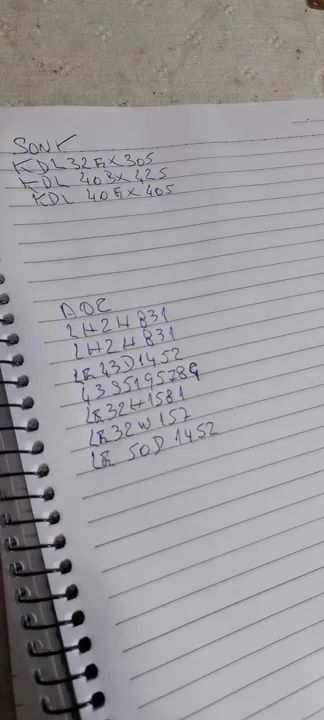 SONY
KDL 32EX305
KDL 40BX425
KDL 40EX405
AOC
LH24831
LH24831
LE43D1452
43S5195/78G
LE32H1581
LE32W157
LE 50D 1452